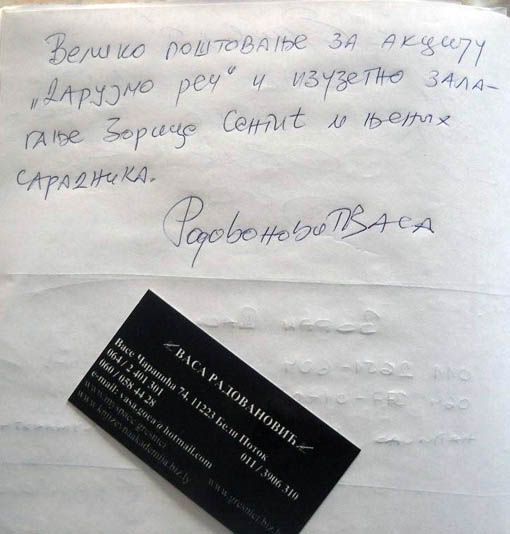 Велико поштовање за акцију
„Дарујмо реч“ и изузетно зала-
гање Зорице Сентић и њених
сарадника.
Радовановић Васа
ВАСА РАДОВАНОВИЋ
Васе Чарапића 74, 11223 Бели Поток
064/2 401 301
011/3906 310
060/058 44 28
e-mail: vasagora@hotmail.com